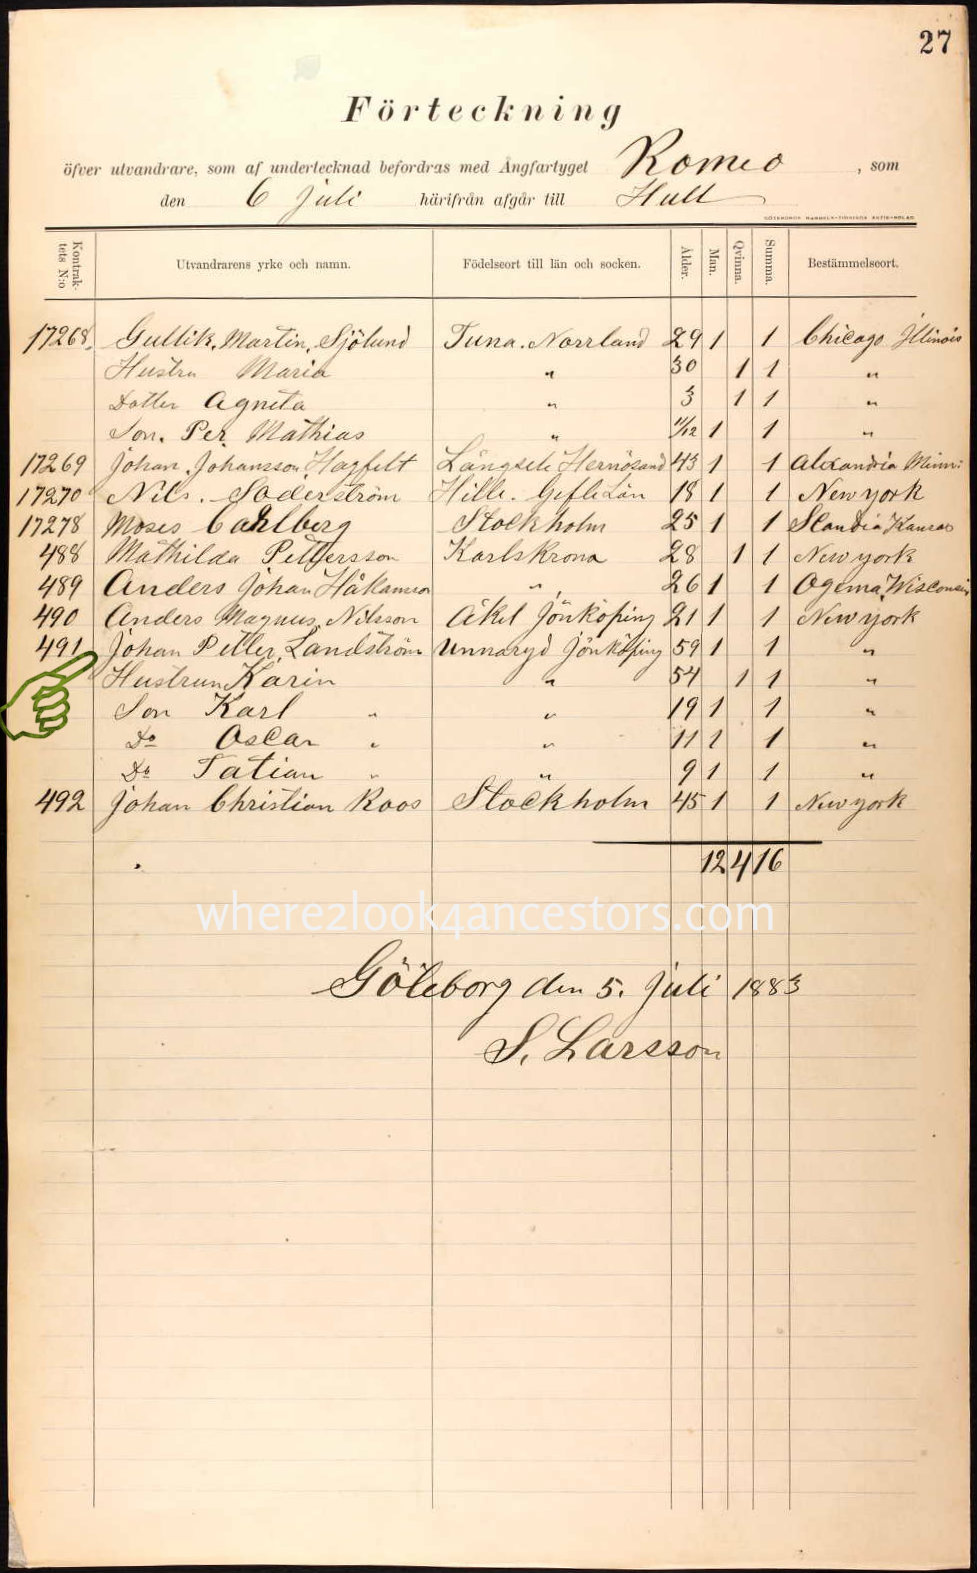 27
Förteckning
öfver utvandrare, som af undertecknad befordras med Ångfartyget Romeo, som
den 6 Juli härifrån afgår till Hull
GÖTEBORGS HANDELS-TIDNINGS AKTIE-BOLAG
Kontrak-tets N:o Utvandrarens yrke och namn. Födelseort till län och socken. Ålder. Man. Qvinna. Summa. Bestämmelseort.
17268. Gullik. Martin. Sjölund Tuna. Norrland 29 1 1 Chicago Illinois
Hustru Maria " 30 1 1 "
Dotter Agneta " 3 1 1 "
Son. Per Mathias " 11/12 1 1 "
17269 Johan Johansson Hagfelt Långsele Hernösand 43 1 1 Alexandria Minn:
17270 Nils. Söderström Hille. Gefle Län 18 1 1 New york
17278 Moses Cahlberg Stockholm 25 1 1 Scandia Kansas
488 Mathilda Pettersson Karlskrona 28 1 1 New york
489 Anders Johan Håkansson " 26 1 1 Ogema Wisconsin
490 Anders Magnus Nilsson Jönköping 21 1 1 New york
491 Johan Petter Landström Unnaryd Jönköping 59 1 1 "
Hustrun Karin " 54 1 1 "
Son Karl " " 19 1 1 "
Do Oscar " " 11 1 1 "
Do Tatian " " 9 1 1 "
492 Johan Christian Roos Stockholm 45 1 1 New york
12 4 16
where2look4ancestors.com
Göteborg den 5. Juli 1883
S. Larsson